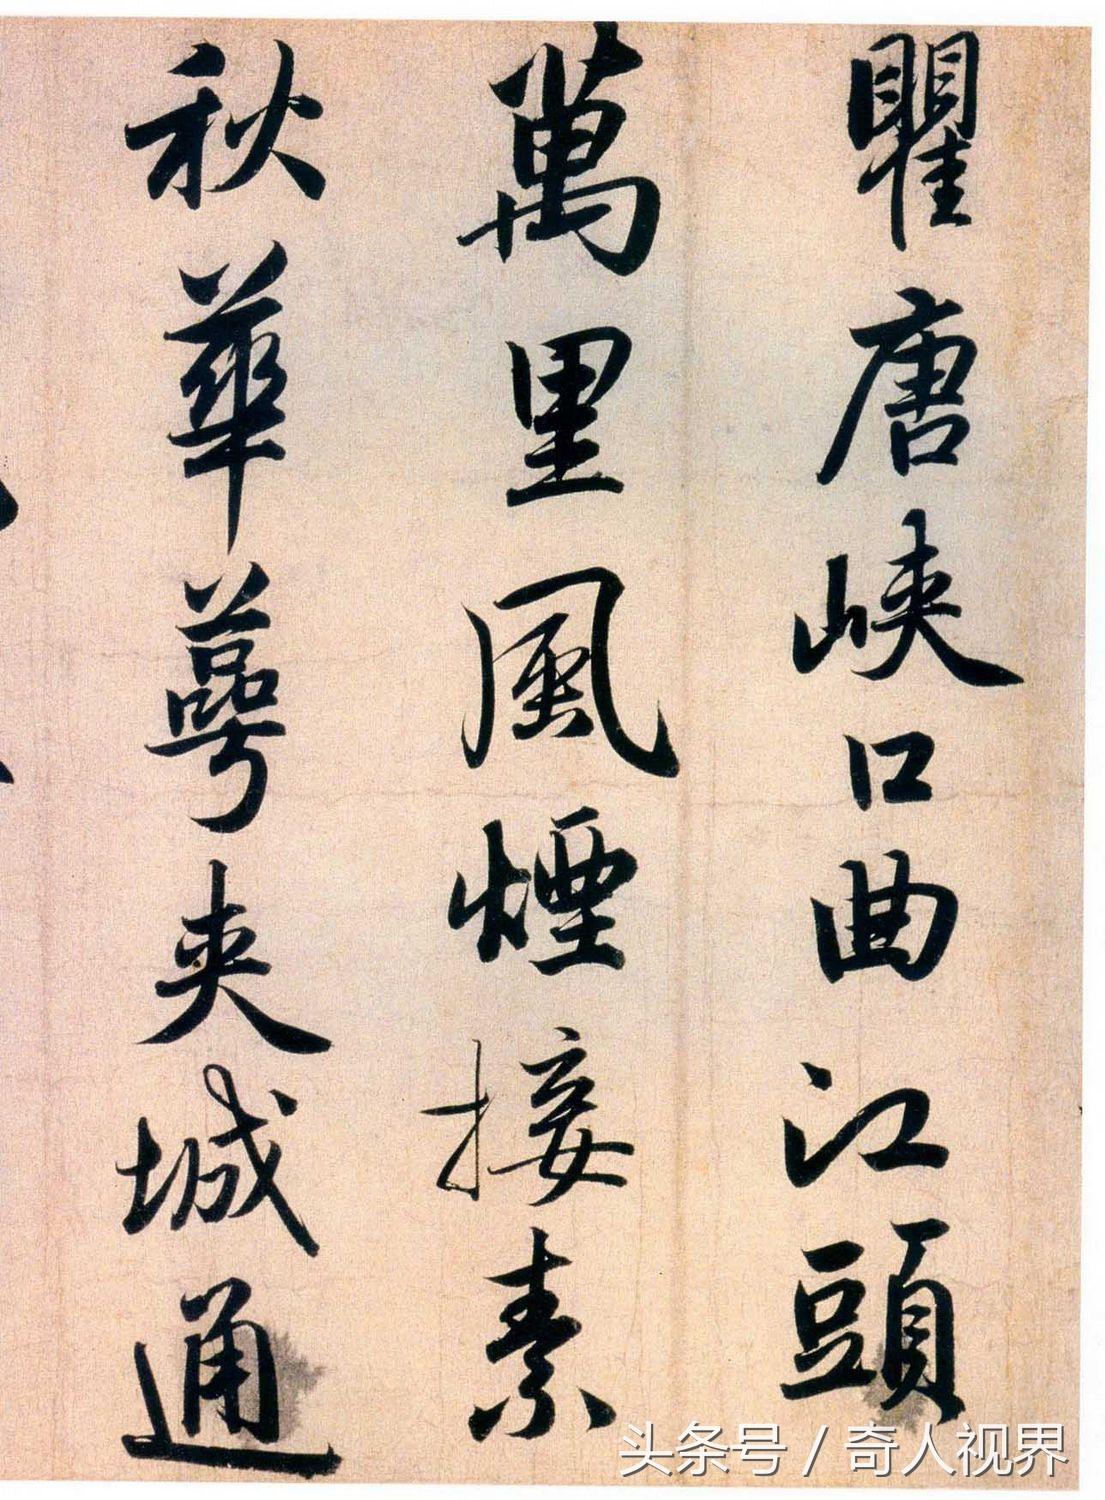 瞿唐峡口曲江頭
萬里風煙接素
秋華萼夹城通
头条号 / 奇人视界